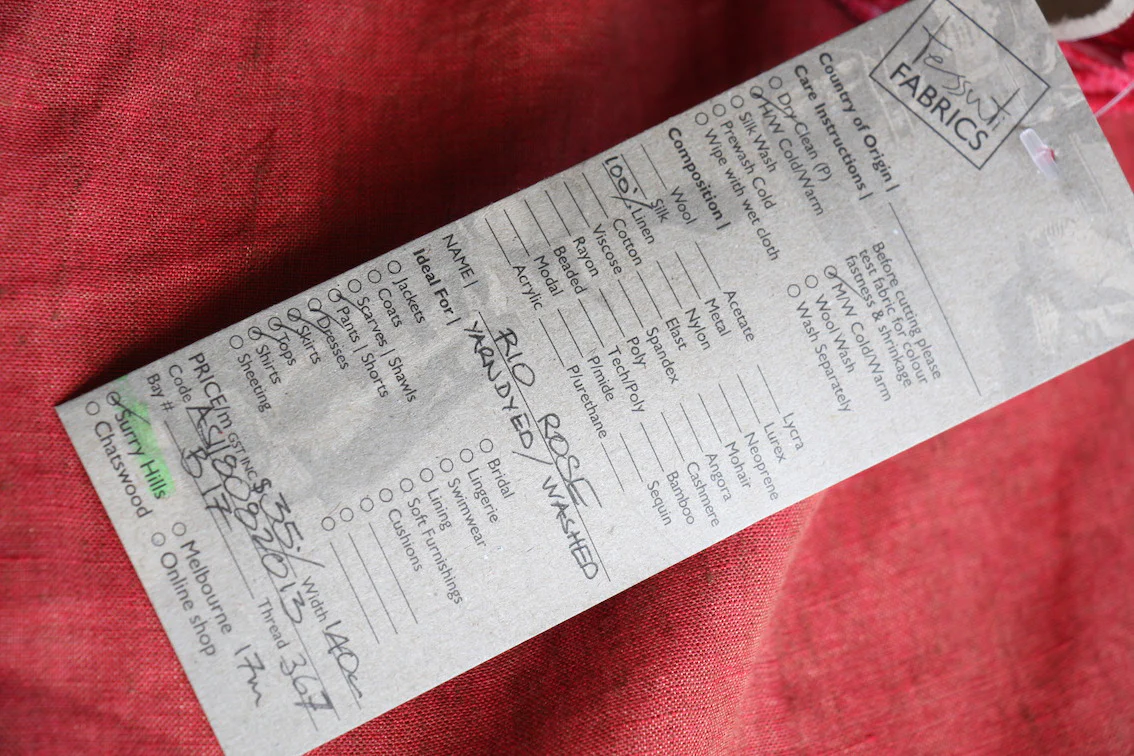 Tessuti
FABRICS
Country of Origin |
Care Instructions |
Dry Clean (P)
H/W Cold/Warm
Silk Wash
Prewash Cold
Wipe with wet cloth
Before cutting please
test fabric for colour
fastness & shrinkage
M/W Cold/Warm
Wool Wash
Wash Separately
Composition |
Wool Acetate Lycra
Silk Metal Lurex
100% Linen Nylon Neoprene
Cotton Elast Mohair
Viscose Spandex Angora
Rayon Poly Cashmere
Beaded Tech/Poly Bamboo
Modal P/mide Sequin
Acrylic P/urethane
NAME | RIO ROSE
YARNDYED/WASHED
Ideal For |
Jackets Bridal
Coats Lingerie
Scarves | Shawls Swimwear
Pants | Shorts Lining
Dresses Soft Furnishings
Skirts Cushions
Tops
Shirts
Sheeting
PRICE/m GST INC $35./ Width 140cm
Code Thread 367
Bay # B17
Surry Hills Melbourne 17m
Chatswood Online shop